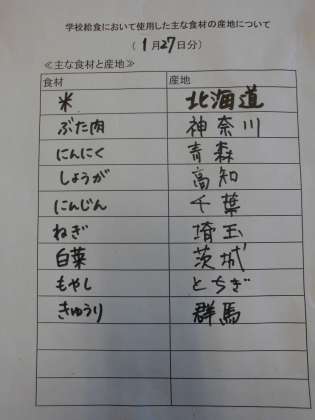 学校給食において使用した主な食材の産地について
(1月27日分)
≪主な食材と産地≫
食材 産地
米 北海道
ぶた肉 神奈川
にんにく 青森
しょうが 高知
にんじん 千葉
ねぎ 埼玉
白菜 茨城
もやし とちぎ
きゅうり 群馬